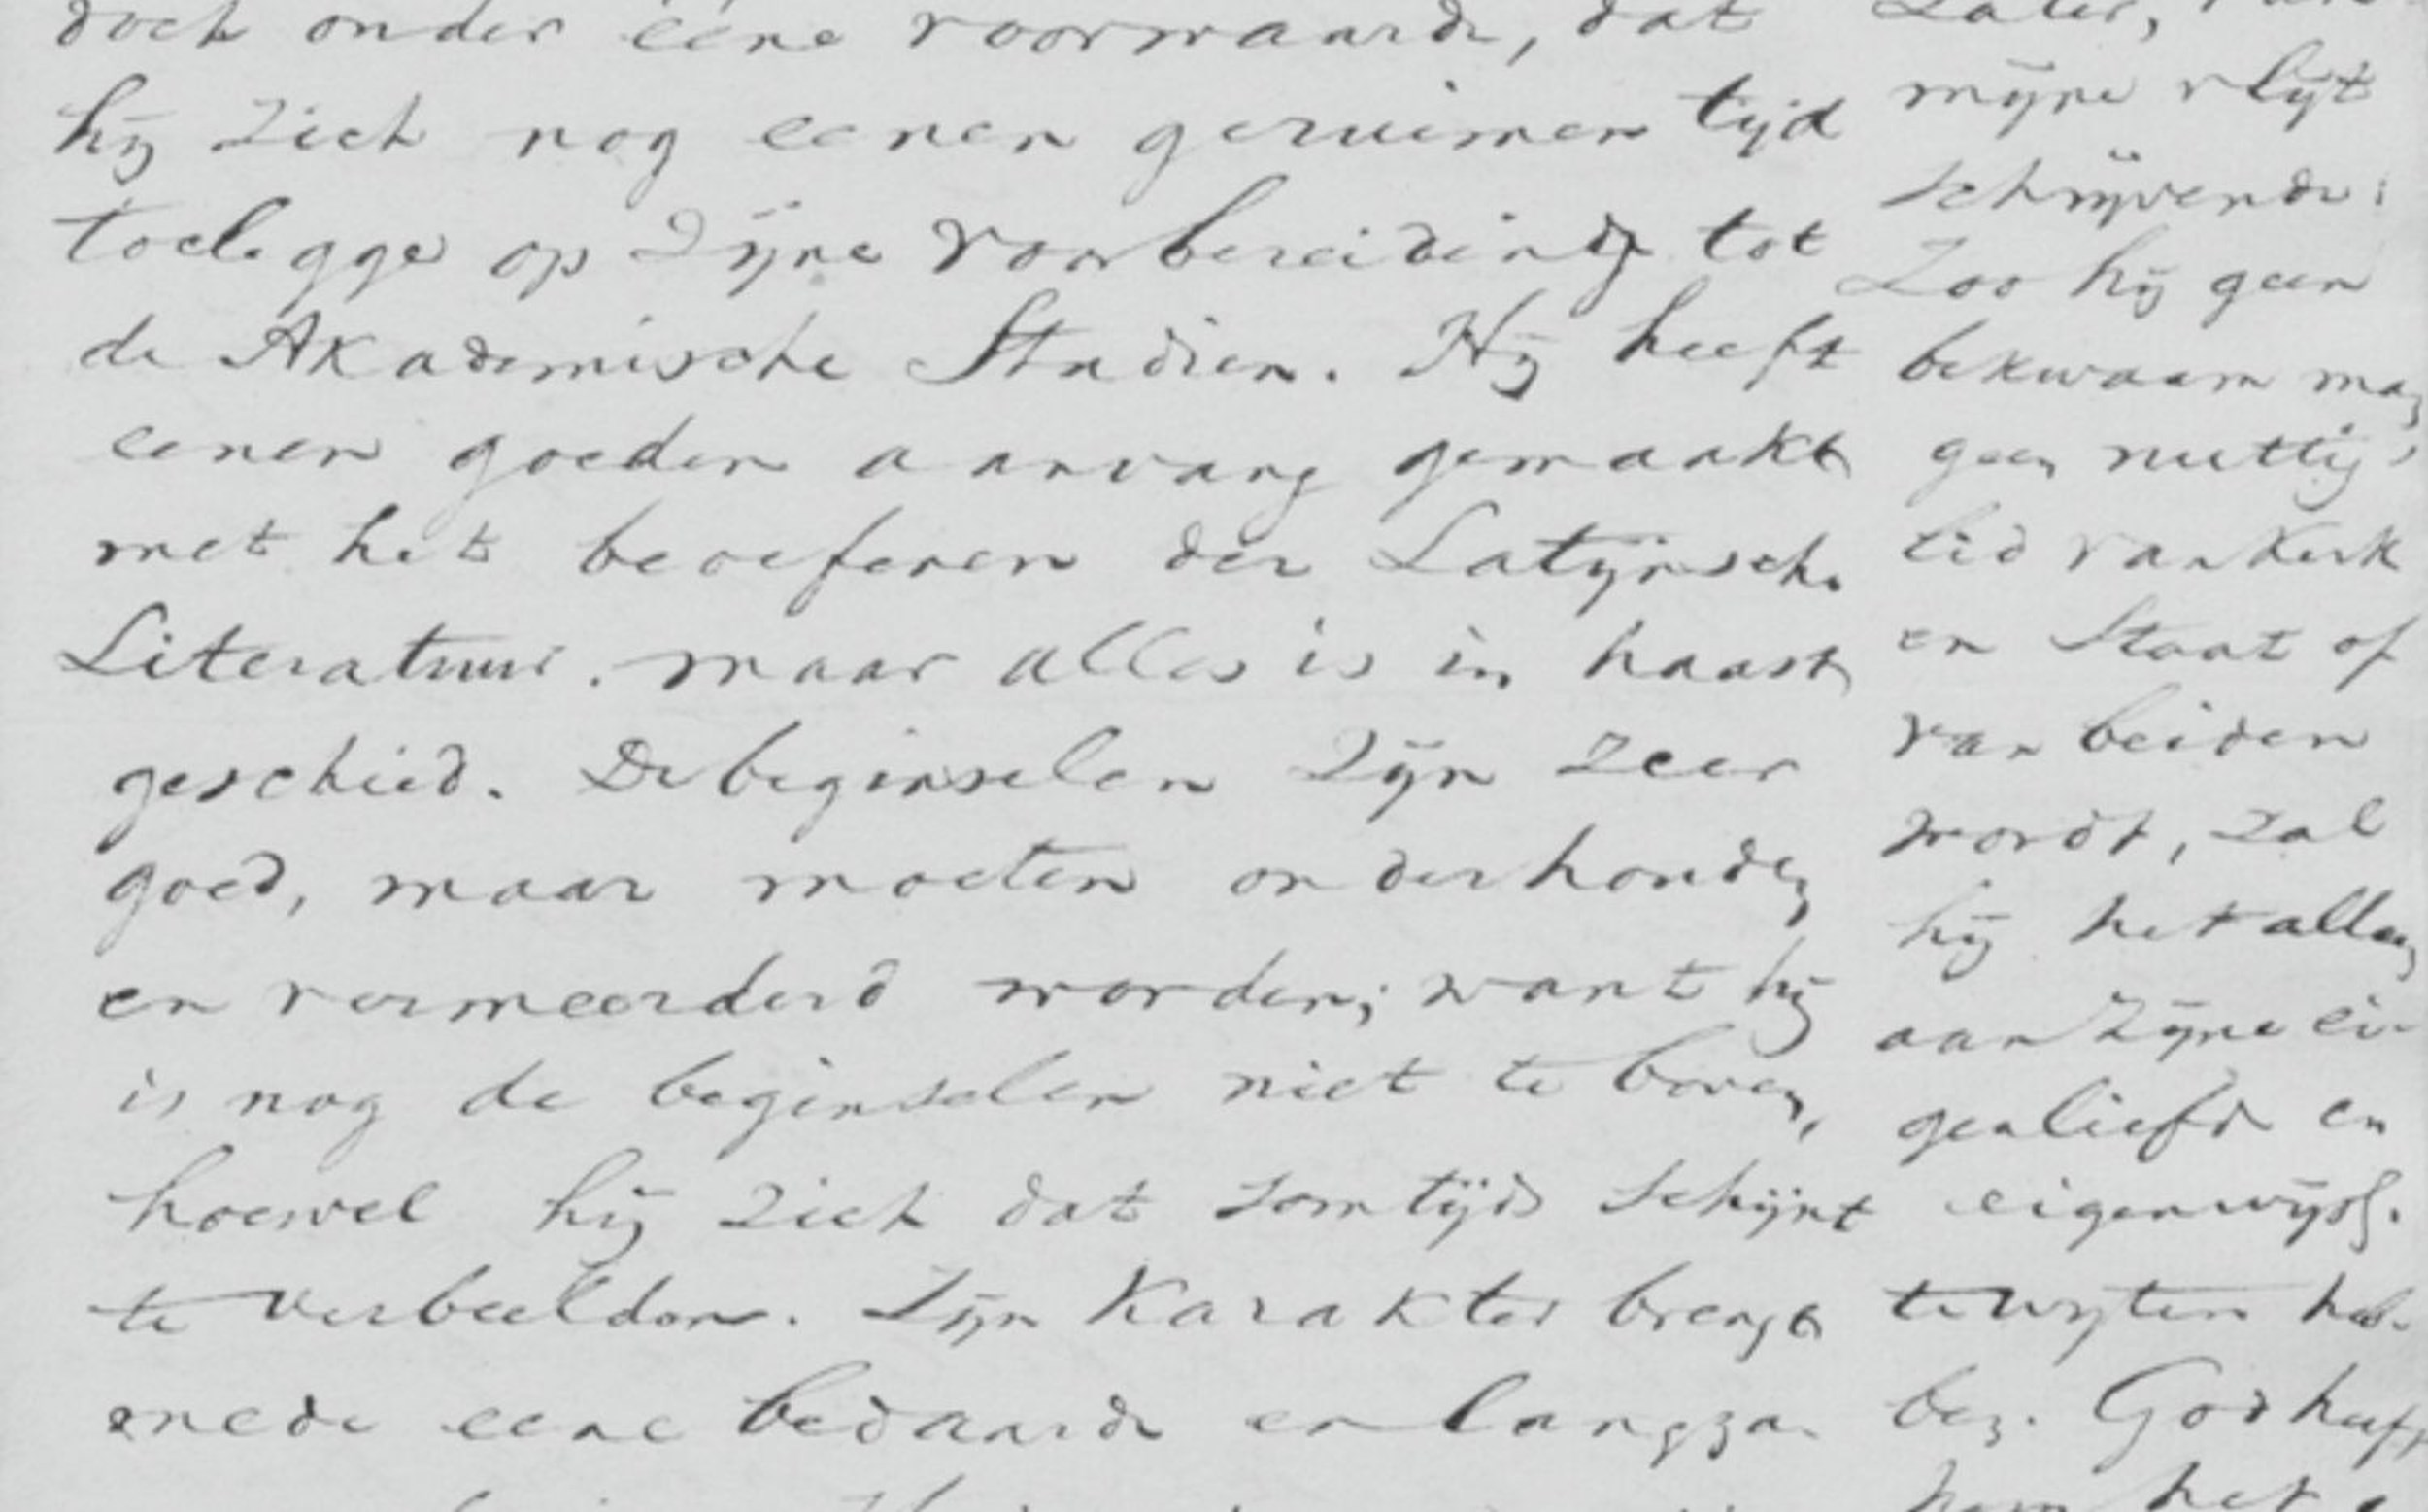 doch onder eene voorwaarde, dat
hij zich nog eenen geruimen tijd
toelegge op zijne voorbereiding tot
de Akademische Studien. Hij heeft
eenen goeden aanvang gemaakt
met het beoefenen der Latijnsche
Literatuur. maar alles is in haast
geschied. De beginselen zijn zeer
goed, maar moeten onderhouden
en vermeerderd worden; want hij
is nog de beginselen niet te boven,
hoewel hij zich dat somtijds schijnt
te verbeelden. Zijn Karakter brengt
mede eene bedaarde en langza
later,
mijne vlijt
schrijvende:
Zoo hij geen
bekwaam man
geen nuttig
lid van Kerk
en Staat of
van beiden
wordt, zal
hij het alleen
aan zijne ei-
genliefde en
eigenwijsh.
te wijten heb-
ben. God heeft
hem het